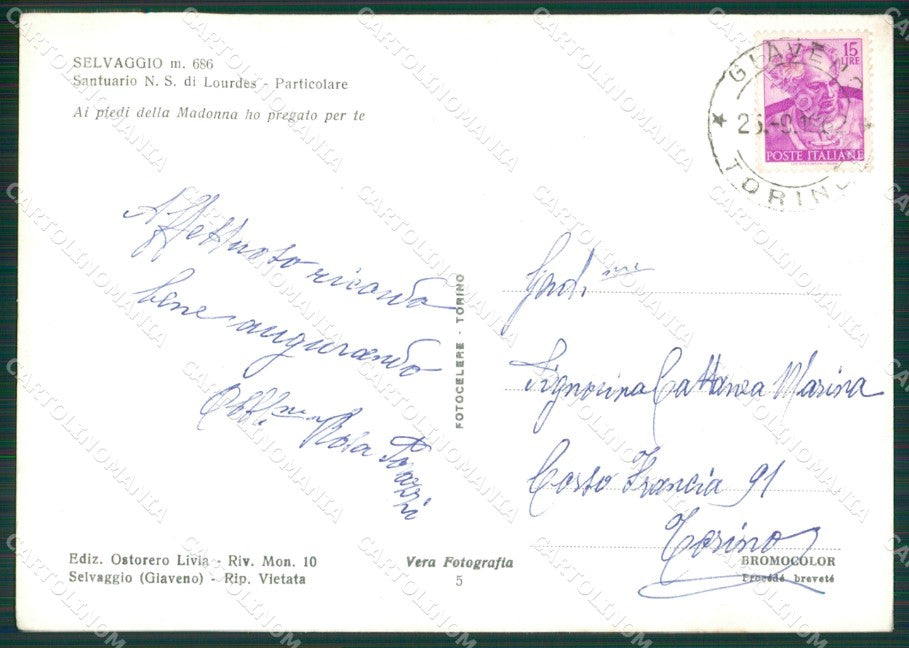 SELVAGGIO m. 686
Santuario N. S. di Lourdes - Particolare
Ai piedi della Madonna ho pregato per te
15
LIRE
POSTE ITALIANE
GIAVENO
TORINO
Affettuoso ricordo
bene augurando
Obbl.ma Rosa
FOTOCELERE - TORINO
Gent.ma
Signorina Cattanea Marina
Corso Francia 91
Torino
Ediz. Ostorero Livia - Riv. Mon. 10
Selvaggio (Giaveno) - Rip. Vietata
Vera Fotografia
5
BROMOCOLOR
Procédé breveté
CARTOLINOMANIA